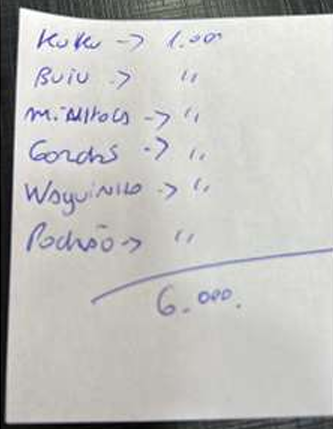 Kuku -> 1.000
Buiu -> "
-> "
Gordas -> "
Waguinho -> "
Pochão -> "
6.000.